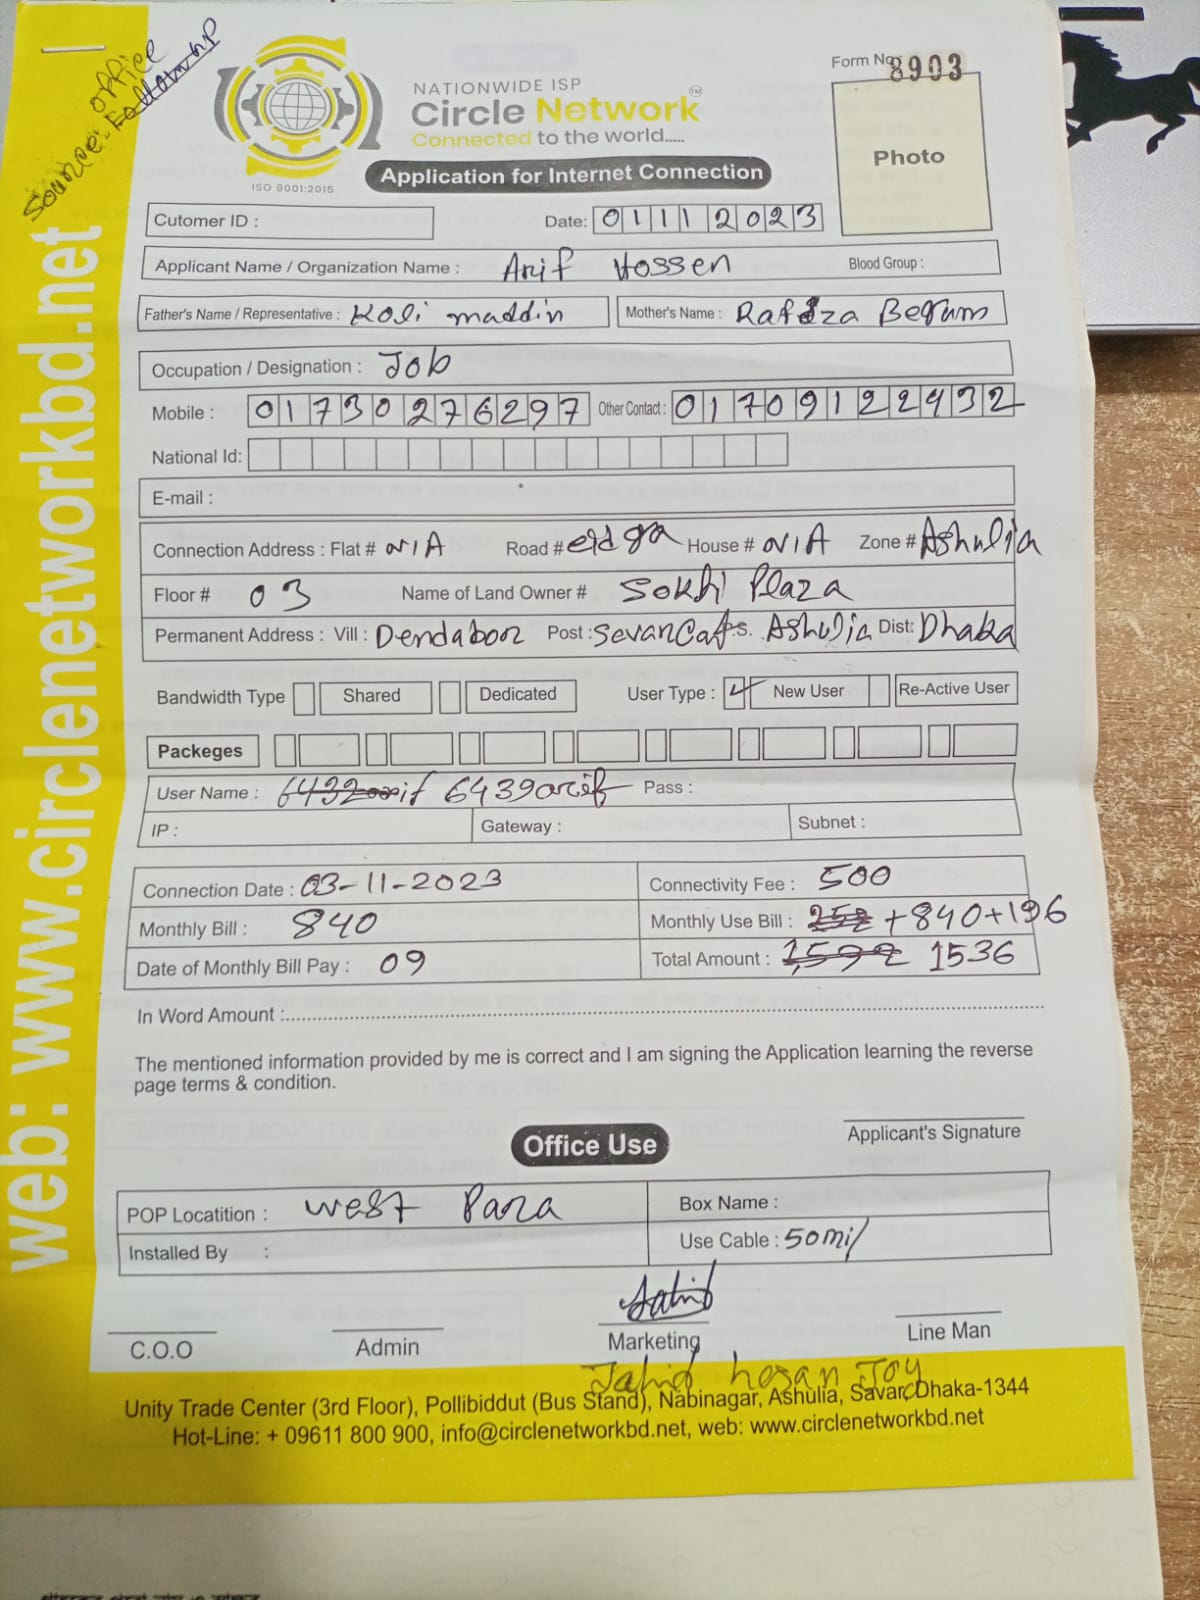 Source: office
Followup
Form No 8903
NATIONWIDE ISP
Circle Network™
Connected to the world.....
ISO 9001:2015
Application for Internet Connection
Photo
Cutomer ID :
Date: 01112023
Applicant Name / Organization Name : Arif Hossen Blood Group :
Father's Name / Representative : Koli maddin Mother's Name : Rafeza Begum
Occupation / Designation : Job
Mobile : 01730276297 Other Contact : 01709122432
National Id:
E-mail :
Connection Address : Flat # N/A Road # eid ga House # N/A Zone # Ashulia
Floor # 03 Name of Land Owner # Sokhi Plaza
Permanent Address : Vill : Dendabor Post : SevanCaf P.S. Ashulia Dist: Dhaka
Bandwidth Type Shared Dedicated User Type : New User Re-Active User
Packeges
User Name : 6432arif 6439arif Pass :
IP : Gateway : Subnet :
Connection Date : 03-11-2023 Connectivity Fee : 500
Monthly Bill : 840 Monthly Use Bill : 252 +840+196
Date of Monthly Bill Pay : 09 Total Amount : 1,592 1536
In Word Amount :
The mentioned information provided by me is correct and I am signing the Application learning the reverse
page terms & condition.
Applicant's Signature
Office Use
POP Locatition : west Para Box Name :
Installed By : Use Cable : 50mi/
C.O.O Admin Marketing Line Man
Jahid hosan Joy
Unity Trade Center (3rd Floor), Pollibiddut (Bus Stand), Nabinagar, Ashulia, Savar, Dhaka-1344
Hot-Line: + 09611 800 900, info@circlenetworkbd.net, web: www.circlenetworkbd.net
web: www.circlenetworkbd.net